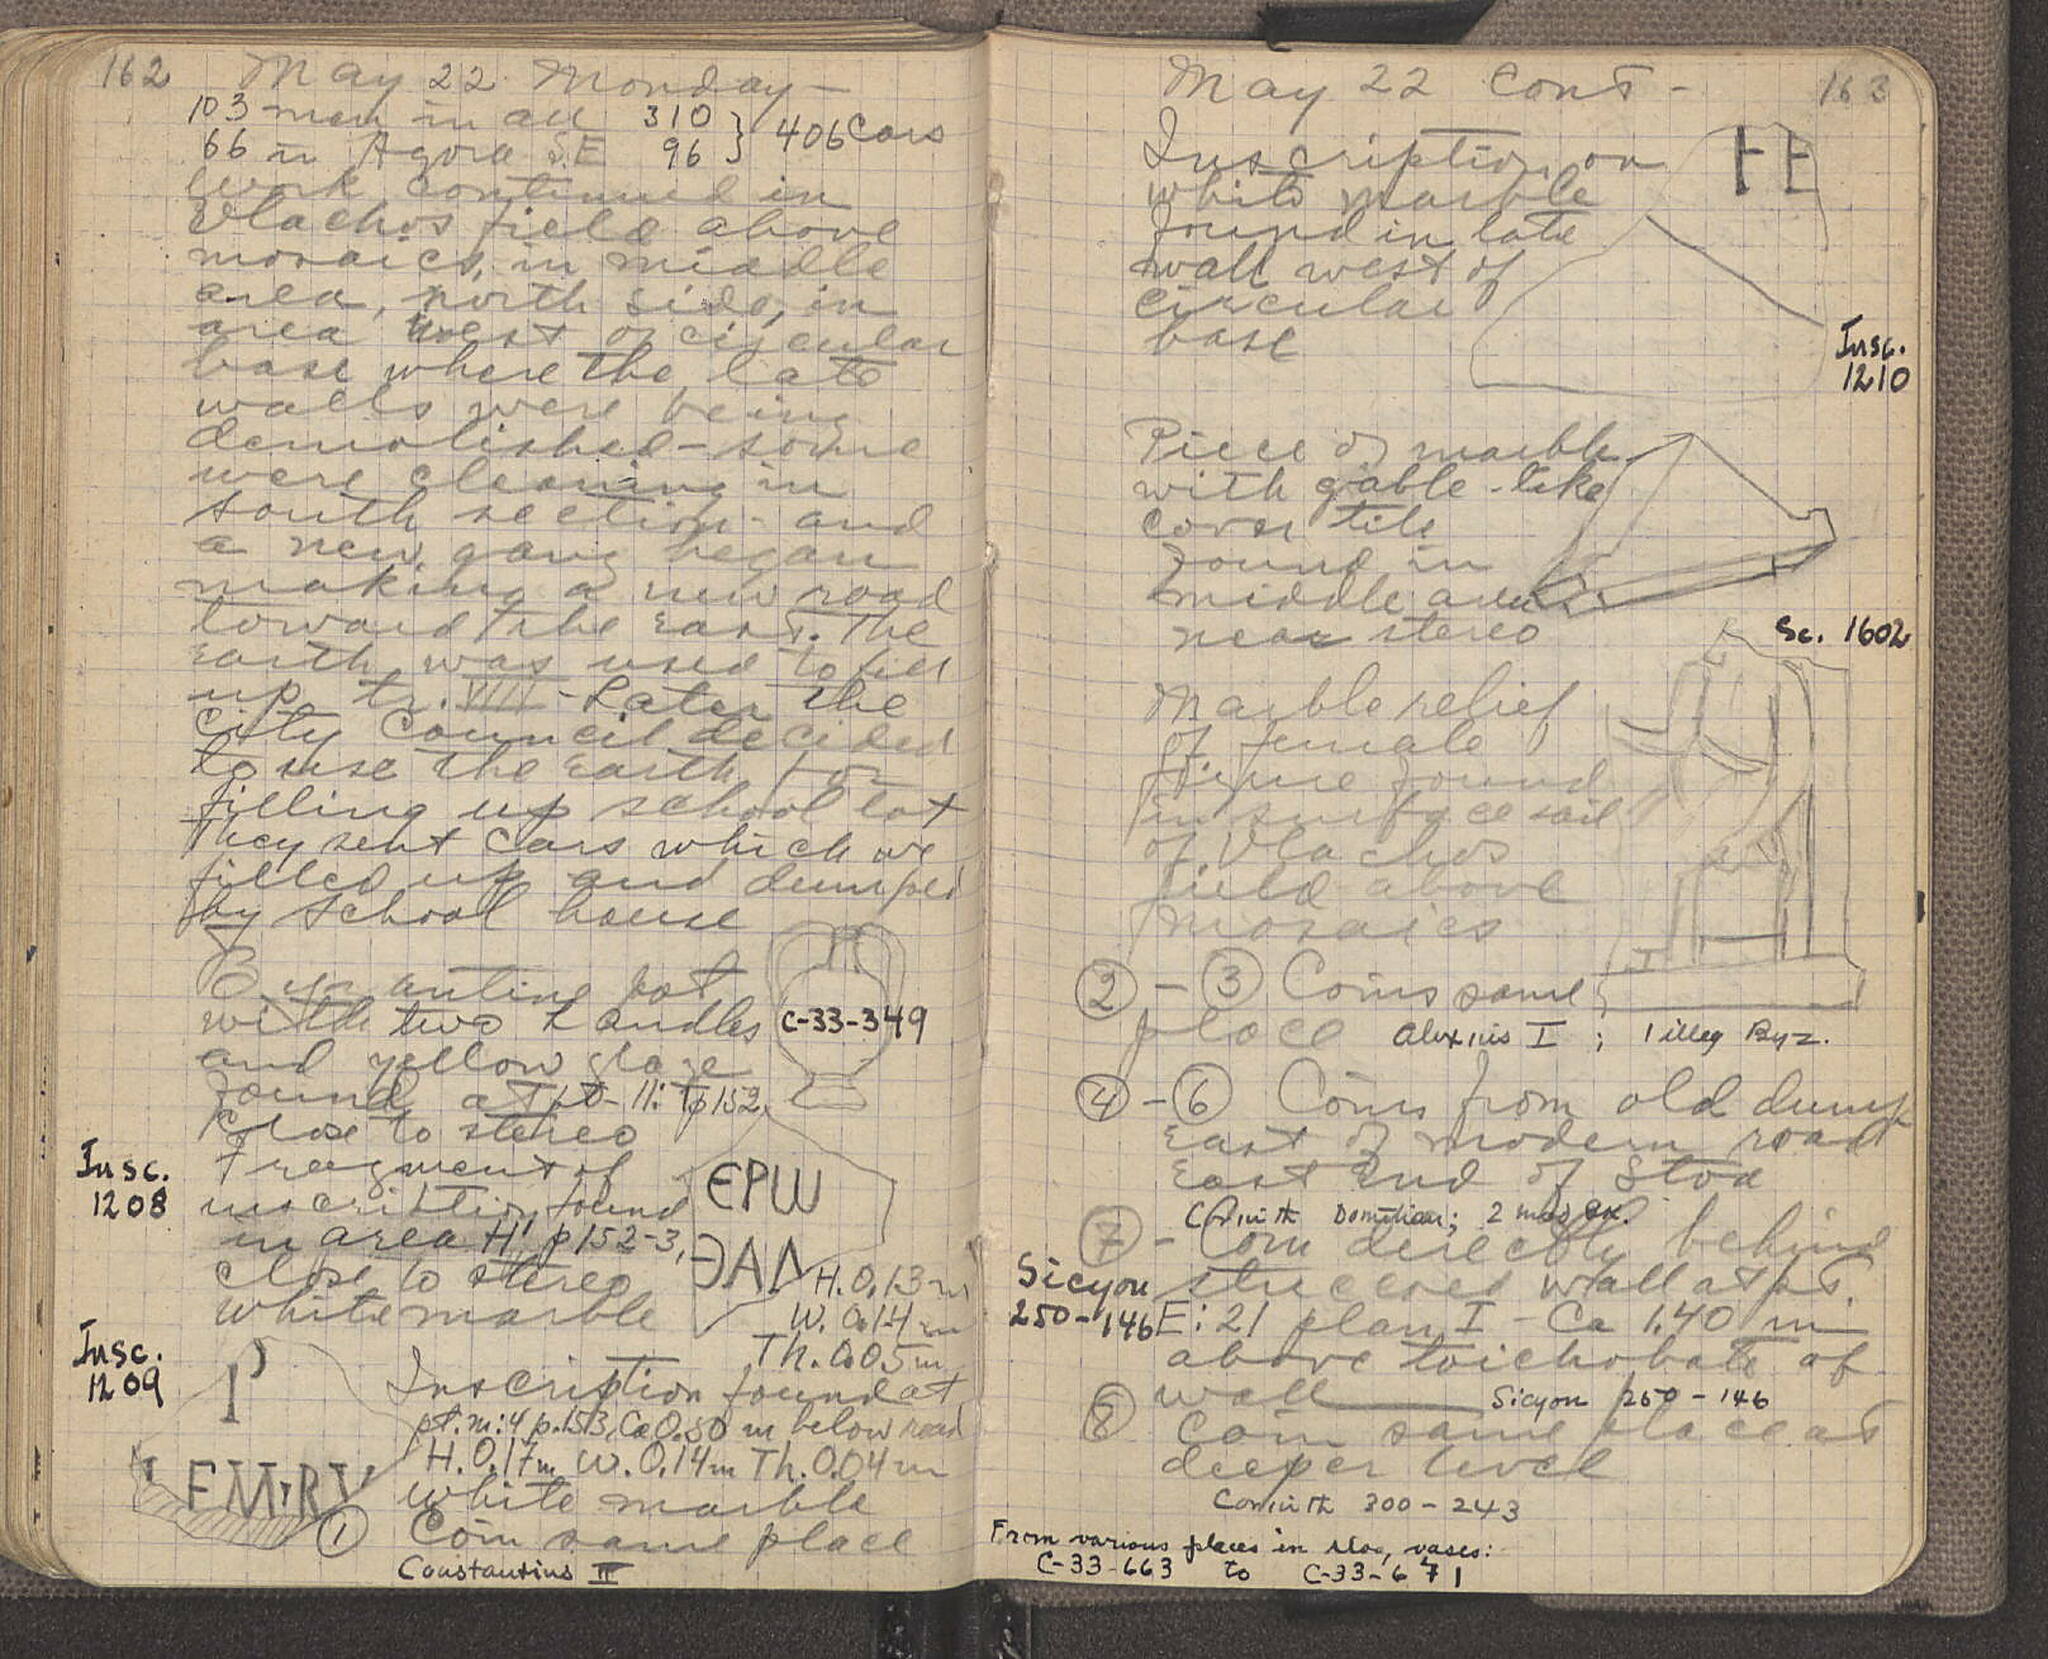 162 May 22 Monday -
103 men in all 310 } 406 Cars
66 in Agora S.E 96
Work continued in
Vlachos field above
mosaics, in middle
area, north side, in
area west of circular
base where the late
walls were being
demolished - some
were cleaning in
south section - and
a new gang began
making a new road
toward the East. The
earth was used to fill
up tr. VIII - Later the
City Council decided
to use the earth for
filling up school lot
They sent cars which we
filled up and dumped
by school house
Byzantine pot
with two handles C-33-349
and yellow glaze
found at pt - 11: p 152
close to stereo
Insc.
1208
Fragment of
inscription found
in area H' p 152-3,
close to stereo
white marble
ЄPW
ЭΑΛ
H. 0.13 m
W. 0.14 m
Th. 0.05 m
Insc.
1209
P
EM·RV
Inscription found at
pt. m:4 p. 153, Ca 0.50 m below road
H. 0.17m W. 0.14m Th. 0.04m
white marble
① Coin same place
Constantius II
May 22 Cont - 163
Inscription on
white marble
found in late
wall west of
circular
base
FE
Insc.
1210
Piece of marble
with gable-like
cover tile
found in
middle area
near stereo
Sc. 1602
Marble relief
of female
figure found
in surface soil
of Vlachos
field above
mosaics
② - ③ Coins same
place Alexius I ; 1 illeg Byz.
④ - ⑥ Coins from old dump
East of modern road
East End of Stoa
Corinth Domitian; 2 mod ex.
⑦ - Coin directly behind
Sicyon
250-146
stuccoed wall at pt.
E: 21 plan I - Ca 1.40 m
above toichobate of
wall Sicyon 250-146
⑧ Coin same place at
deeper level
Corinth 300-243
From various places in Stoa, vases:
C-33-663 to C-33-671